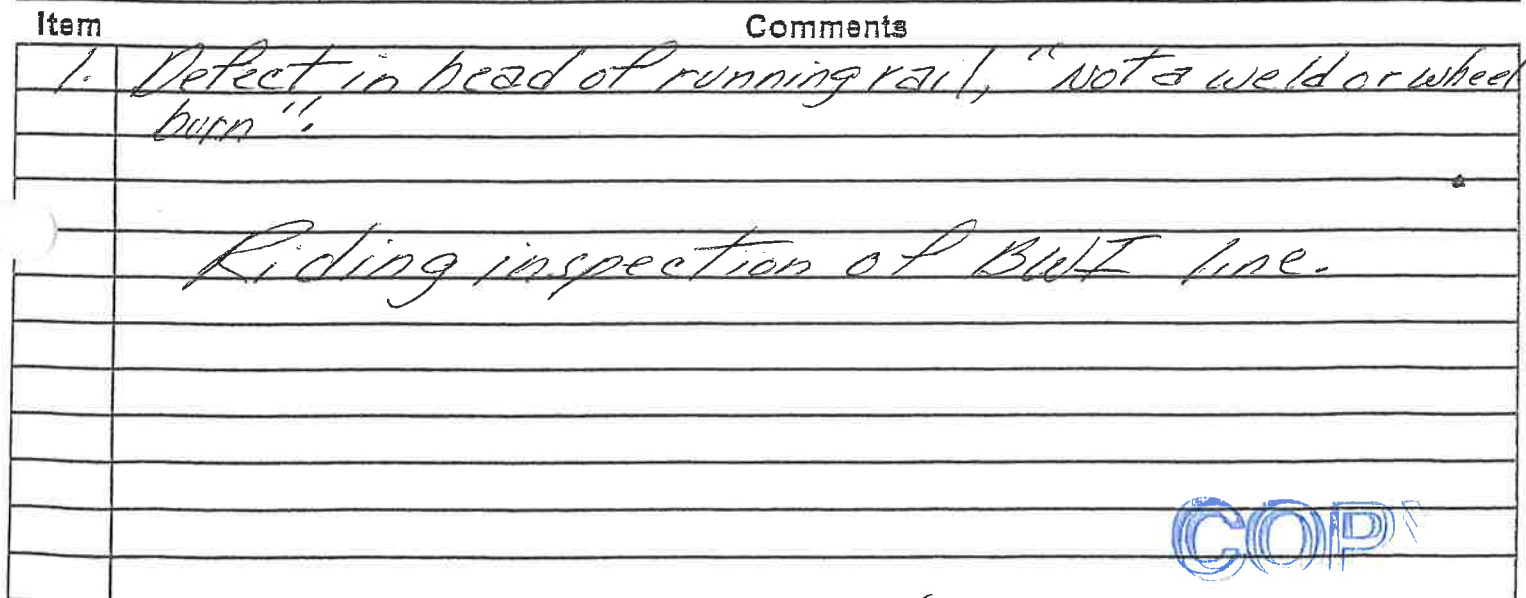 Item Comments
1. Defect in head of running rail, "Not a weld or wheel
burn".
Riding inspection of BWI line.
COP